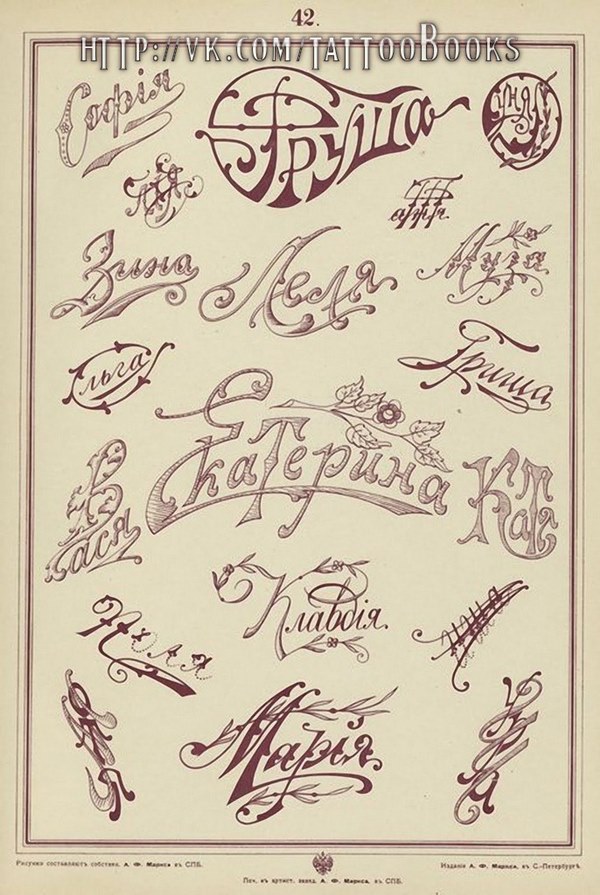 42.
http://vk.com/tattooBooks
Софія
Груша
Зина
Леля
Муза
Ольга
Гриша
Екатерина
Вася
Катя
Клавдія.
Марія
Рисунки составляютъ собствен. А. Ф. Маркса въ СПБ.
Изданіе А. Ф. Маркса, въ С.-Петербургѣ.
Печ. въ артист. завед. А. Ф. Маркса, въ СПБ.